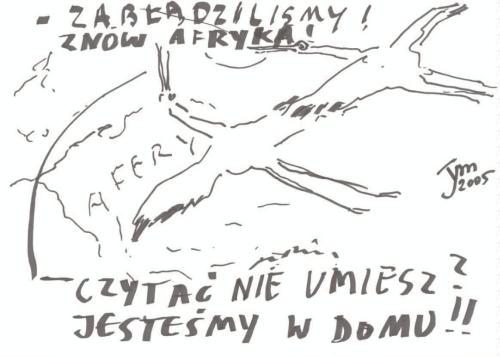 - ZABŁĄDZILIŚMY!
ZNÓW AFRYKA!
AFERY
Jym
2005
- CZYTAĆ NIE UMIESZ?
JESTEŚMY W DOMU!!